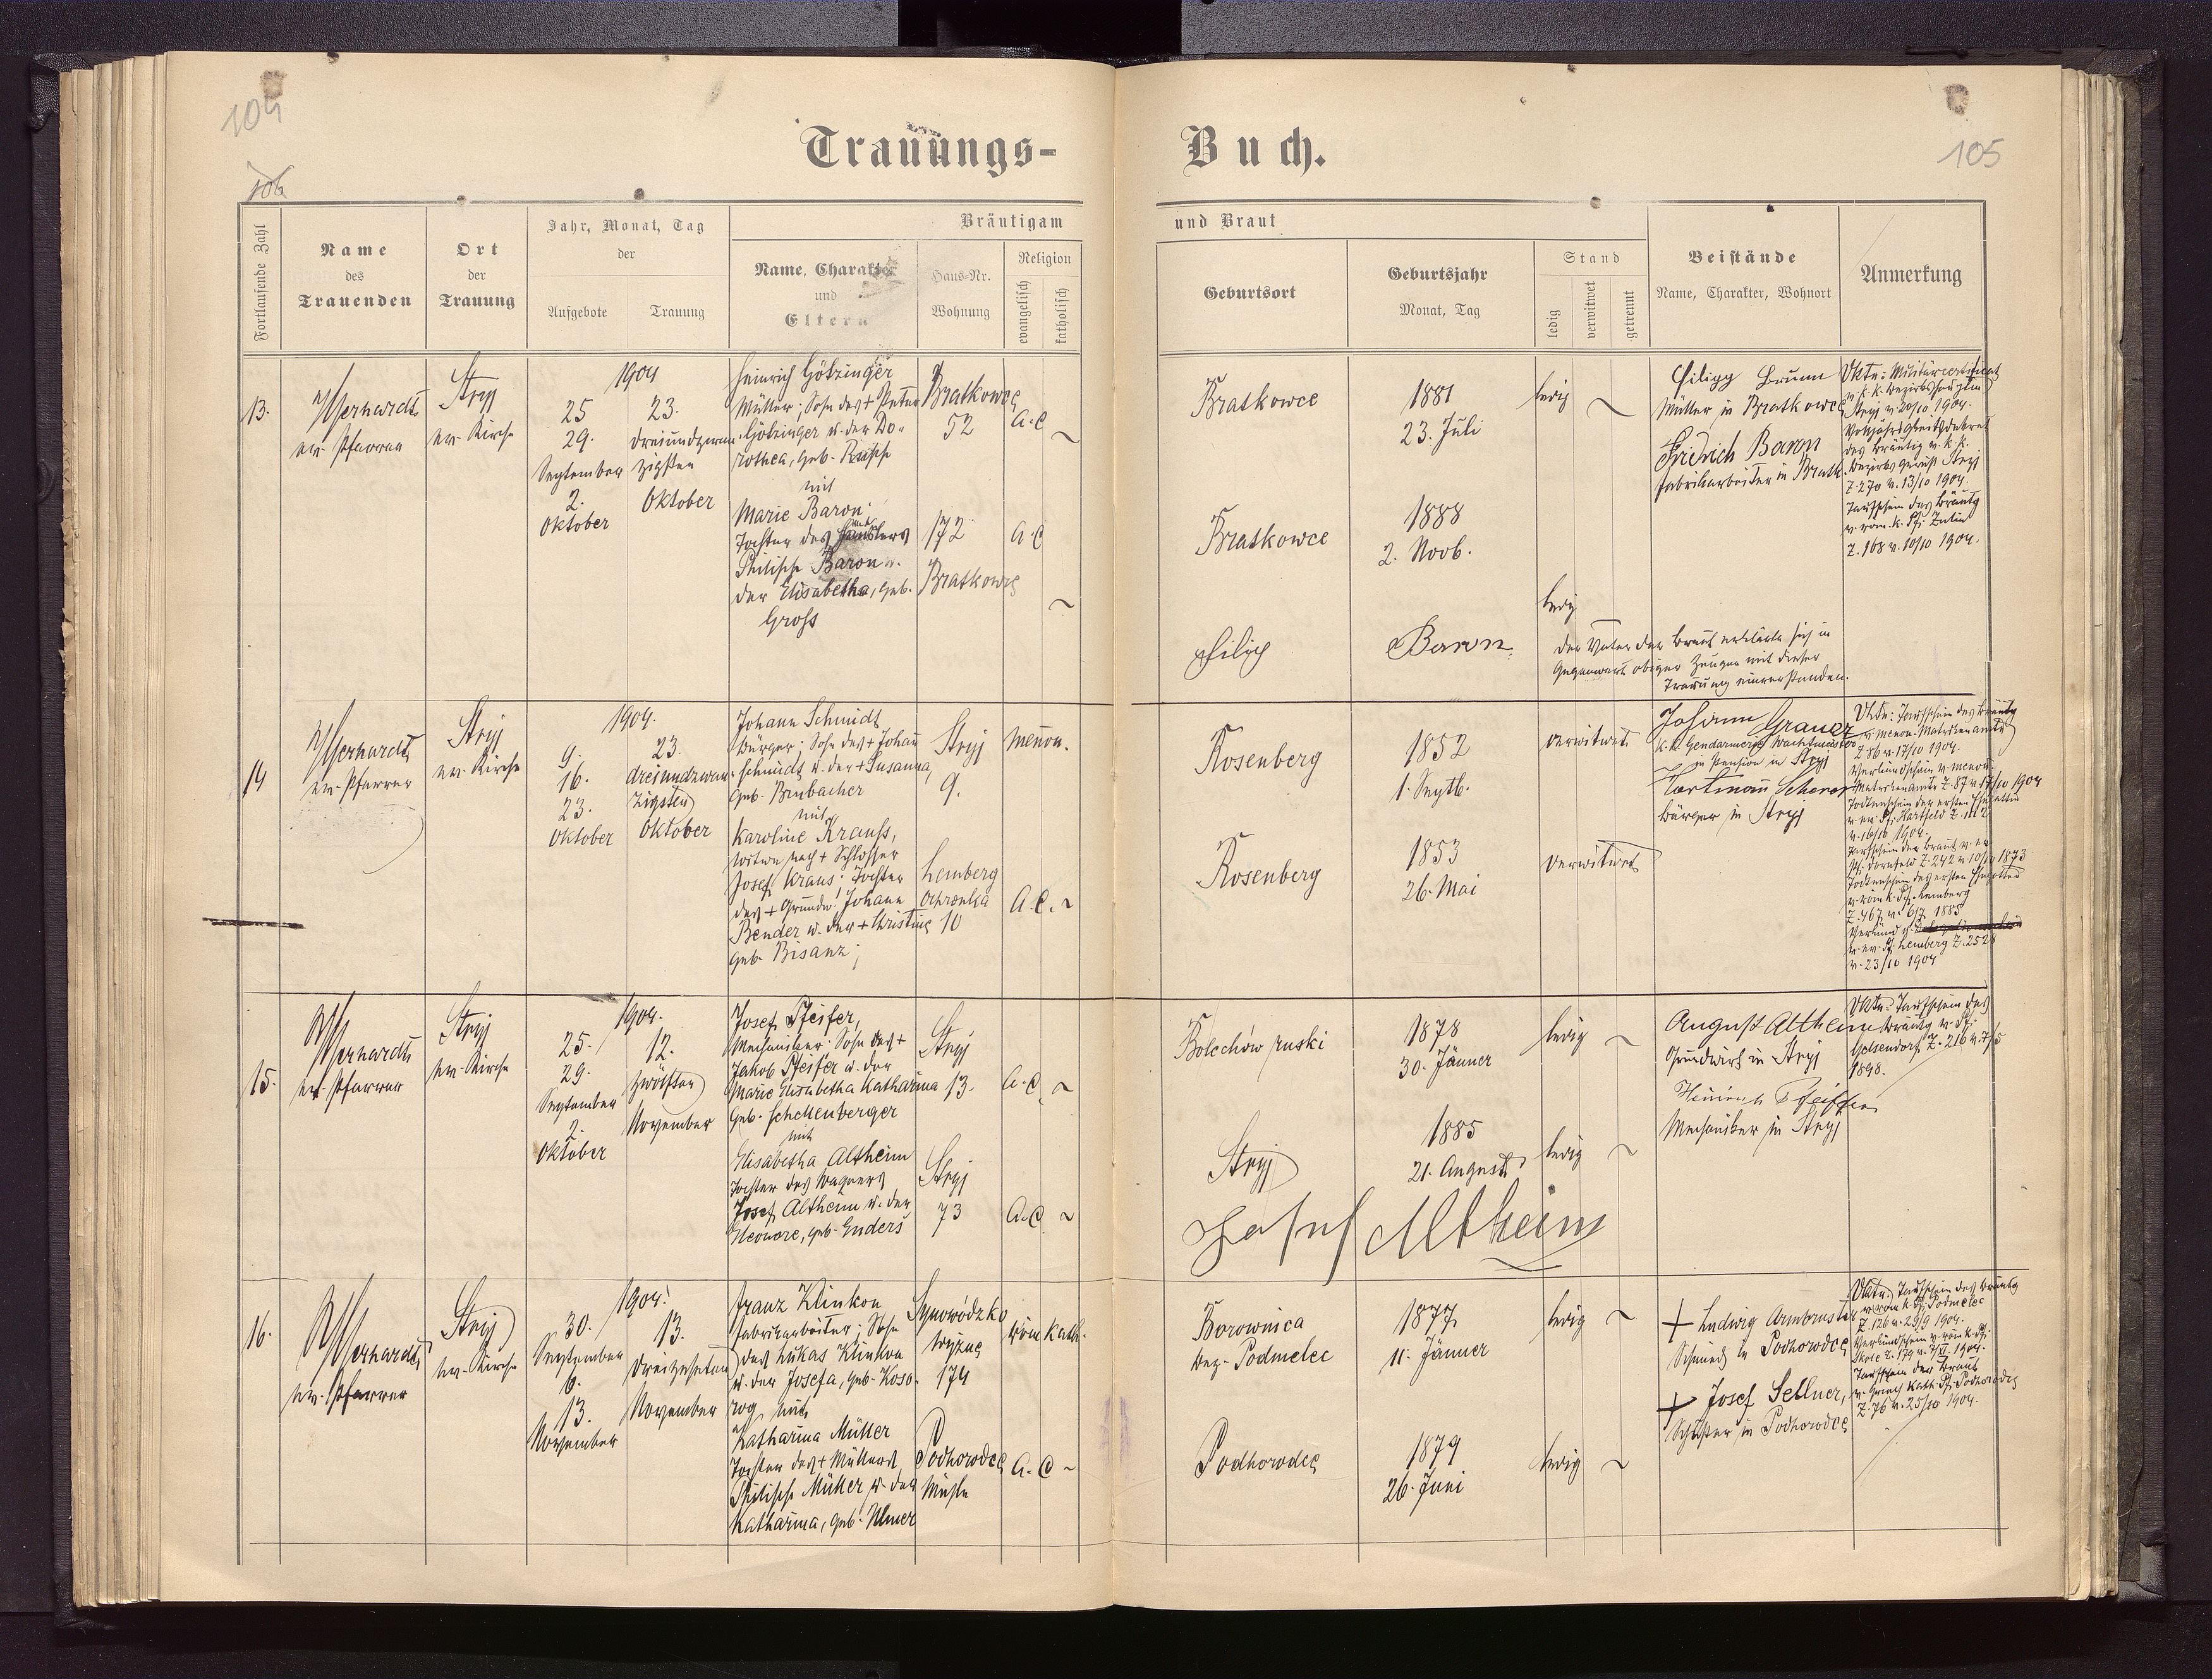 104
106
Trauungs-
Fortlaufende Zahl
Name
des
Trauenden
Ort
der
Trauung
Jahr, Monat, Tag
der
Aufgebote
Trauung
Bräutigam
Name, Charakter
und
Eltern
Haus-Nr.
Wohnung
Religion
evangelisch
katholisch
13.
ev. Pfarrer
Stryj
ev. Kirche
1904
25
29.
September
2.
Oktober
23.
dreiundzwan-
zigsten
Oktober
Heinrich Götzinger
Müller; Sohn des + Peter
Götzinger u. der Do-
rothea, geb. Rupp
mit
Marie Baron
Tochter des Häuslers
Philipp Baron u.
der Elisabetha, geb.
Gross
Bratkowce
52
A. C
172
Bratkowce
A. C
14
ev. Pfarrer
Stryj
ev. Kirche
1904.
9.
16.
23.
Oktober
23.
dreiundzwan-
zigsten
Oktober
Johann Schmidt
Bürger; Sohn des + Johann
Schmidt u. der + Susanna,
geb. Brubacher
mit
Karoline Krauss,
Witwe nach + Schlosser
Josef Kraus; Tochter
des + Grundw. Johann
Bender u. der + Christine
geb. Bisanz;
Stryj
9.
menon.
Lemberg
Ochronka
10
A. C.
15.
ev. Pfarrer
Stryj
ev. Kirche
1904.
25.
29.
September
2.
Oktober
12.
zwölften
November
Josef Pfeifer,
Mechaniker; Sohn des +
Jakob Pfeifer u. der
Marie Elisabetha Katharina
geb. Schellenberger
mit
Elisabetha Altheim
Tochter des Wagners
Josef Altheim u. der
Eleonore, geb. Enders
Stryj
13.
A. C.
Stryj
73
A. C
16.
ev. Pfarrer
Stryj
ev. Kirche
1904.
30.
September
6.
13.
November
13.
dreizehnten
November
Franz Klinkon
Fabrikarbeiter; Sohn
des Lukas Klinkon
u. der Josefa, geb. Koso-
rog mit
Katharina Müller
Tochter des + Müllers
Philipp Müller u. der
Katharina, geb. Ulmer
Synowódzko
wyżne
174
röm. kath.
Podhorodce
Mühle
A. C
Buch.
105
und Braut
Geburtsort
Geburtsjahr
Monat, Tag
Stand
ledig
verwitwet
getrennt
Beistände
Name, Charakter, Wohnort
Anmerkung
Bratkowce
1881
23. Juli
ledig
Müller in Bratkowce
Fridrich Baron
Fabrikarbeiter in Bratk.
Uktn: Militärcertificat
v. k. k. Bezirkshauptm.
Stryj v. 20/10 1904.
Volljährigkeitsdekret
des Bräutig. v. k. k.
Bezirksgericht Stryj
Z. 270 v. 13/10 1904.
Taufschein des Bräutg
v. röm. k. Pf. Zulin
Z. 168 v. 10/10 1904.
Bratkowce
1888
2. Novb.
ledig
Filip Baron
Der Vater der Braut erklärte sich in
Gegenwart obiger Zeugen mit dieser
Trauung einverstanden.
Rosenberg
1852
1. Septb.
verwitwet
Johann Grauer
k. k. Gendarmerie Wachtmeister
in Pension in Stryj
Hartmann Scherer
Bürger in Stryj
Uktn: Taufschein des Bräutg
v. menon. Matrikenamte
Z. 86 v. 17/10 1904.
Verkündschein v. menon.
Matrikenamte Z. 87 v. 17/10 1904
Todtenschein der ersten Ehegattin
v. ev. Pf. Hartfeld
v. 16/10 1904.
Taufschein der Braut v. ev.
Pf. Dornfeld Z. 242 v. 10/10 1873
Todtenschein des ersten Ehegatten
v. röm. k. Pf. Lemberg
Z. 467 v. 6/7 1885
v. ev. Pf. Lemberg Z. 2528
v. 23/10 1904
Rosenberg
1853
26. Mai
verwitwet
Bolechów ruski
1878
30. Jänner
ledig
August Altheim
Grundwirt in Stryj
Heinrich Pfeiffer
Mechaniker in Stryj
Uktn: Taufschein des
Bräutg v. Pf.
Gelsendorf Z. 216 v. 7/5
1898.
Stryj
1885
21. August
ledig
Josef Altheim
Borownica
Bez. Podmelec
1877
11. Jänner
ledig
+ Ludwig Armbruster
Schmied in Podhorodce
+ Josef Sellner,
Schuster in Podhorodce
Uktn: Taufschein des Bräutg
v. röm. k. Pf. Podmelec
Z. 126 v. 29/9 1904.
Verkündschein v. röm. k. Pf.
Skole Z. 179 v. 7/XI 1904.
Taufschein der Braut
v. griech. kath. Pf. Podhorodce
Z. 76 v. 25/10 1904.
Podhorodce
1879
26. Juni
ledig